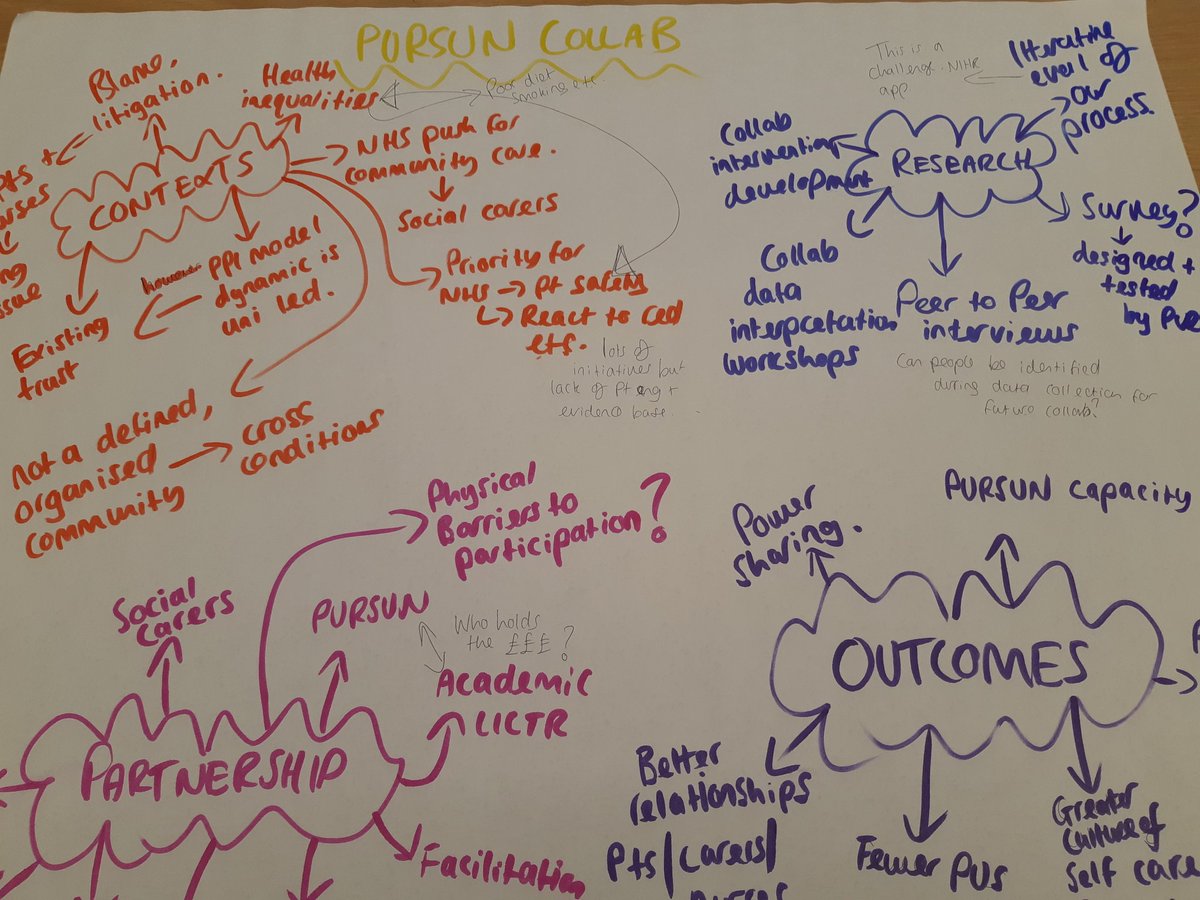 PURSUN COLLAB
Blame,
litigation.
Health
inequalities
Poor diet
smoking etc.
CONTEXTS
NHS push for
community care.
Social carers
Pts +
Existing
trust
however
PPI model
dynamic is
uni led.
Priority for
NHS → Pt safety
React to red
etf.
lots of
initiatives but
lack of Pt eng +
evidence base.
not a defined,
organised
community
cross
conditions
This is a
challenge. NIHR
app
Iterative
eval of
our
process
RESEARCH
Collab
intervention
development
Collab
data
interpretation
workshops
Peer to Peer
interviews
Can people be identified
during data collection for
future collab?
Survey?
designed +
tested
by
PARTNERSHIP
Social
carers
Physical
Barriers to
participation?
PURSUN
Who holds
the £££?
Academic
LICTR
Facilitation
OUTCOMES
Power
sharing.
PURSUN capacity
Better
relationships
Pts/carers/
Fewer PUs
Greater
culture of
self care